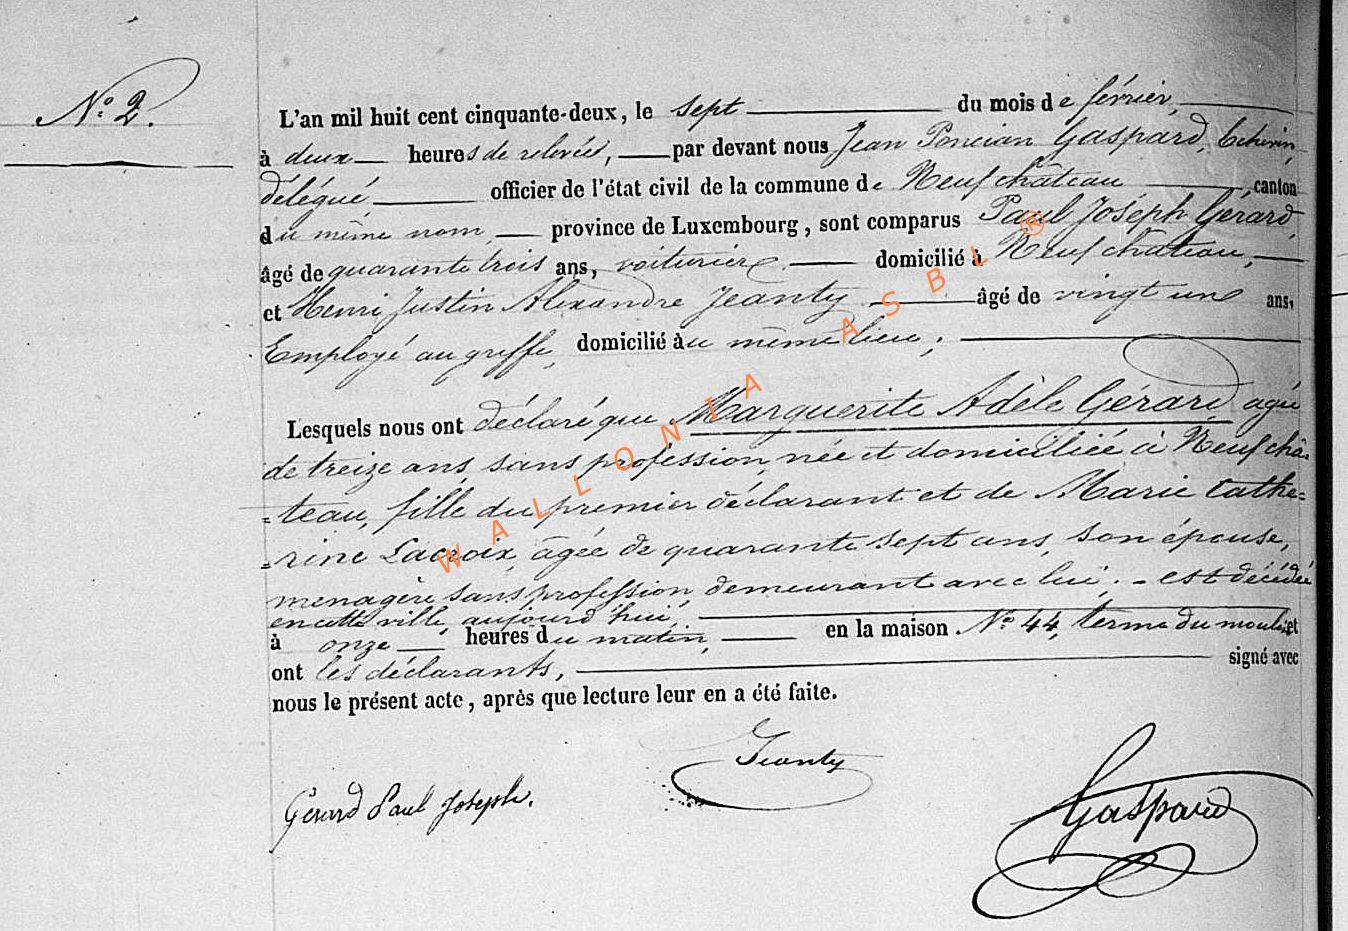 N.° 2.
L'an mil huit cent cinquante-deux, le sept du mois de février
à deux heures de relevée, par devant nous Jean Poncian Gaspard, Echevin
délégué, officier de l'état civil de la commune de Neufchâteau canton
du même nom, province de Luxembourg, sont comparus Paul Joseph Gérard,
âgé de quarante trois ans, voiturier domicilié à Neufchâteau,
et Henri Justin Alexandre Jeanty âgé de vingt un ans,
Employé au greffe, domicilié au même lieu;
Lesquels nous ont déclaré que Marguerite Adèle Gérard agée
de treize ans, sans profession, née et domiciliée à Neufchâ-
=teau, fille du premier déclarant et de Marie Cathe=
=rine Lacroix, âgée de quarante sept ans, son épouse,
menagère sans profession, demeurant avec lui. - est décédée
en cette ville, aujourd'hui,
à onze heures du matin, en la maison N.° 44, terme du moulin et
ont les déclarants, signé avec
nous le présent acte, après que lecture leur en a été faite.
Jeanty
Gérard Paul Joseph.
Gaspard
WALLONIA ASBL ®